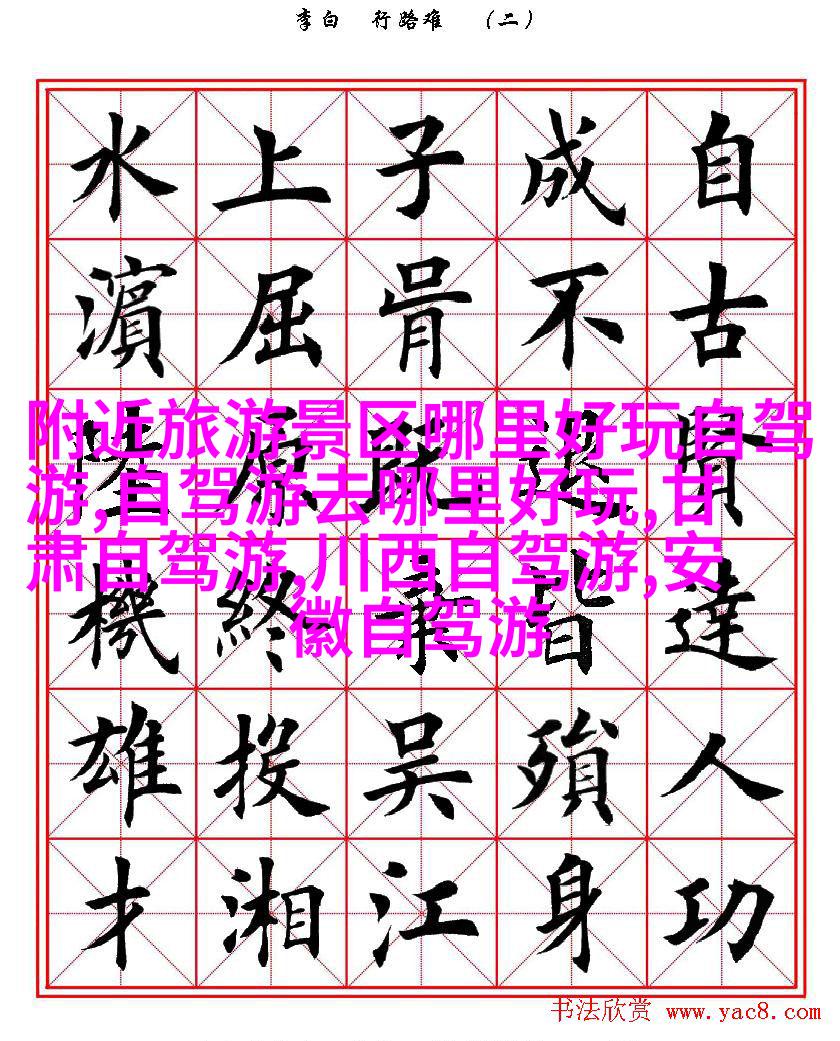 李白 行路难 （二）
自古賢達人功
成不退皆殞身
子胥既棄吳江
上屈原終投湘
水濱陸機雄才
附近旅游景区哪里好玩自驾
游,自驾游去哪里好玩,甘
肃自驾游,川西自驾游,安
徽自驾游
书法欣赏 www.yac8.com